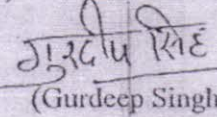 गुरदीप सिंह
(Gurdeep Singh